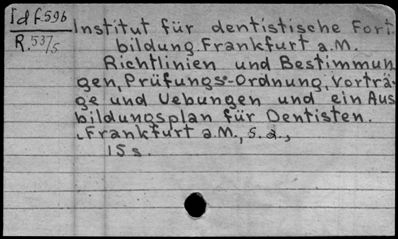 Idf 596
R.537/5
Institut für dentistische Fort
bildung. Frankfurt a.M.
Richtlinien und Bestimmun
gen, Prüfungs-Ordnung, Vorträ-
ge und Uebungen und ein Aus
bildungsplan für Dentisten.
Frankfurt a.M., s.a.,
15 s.